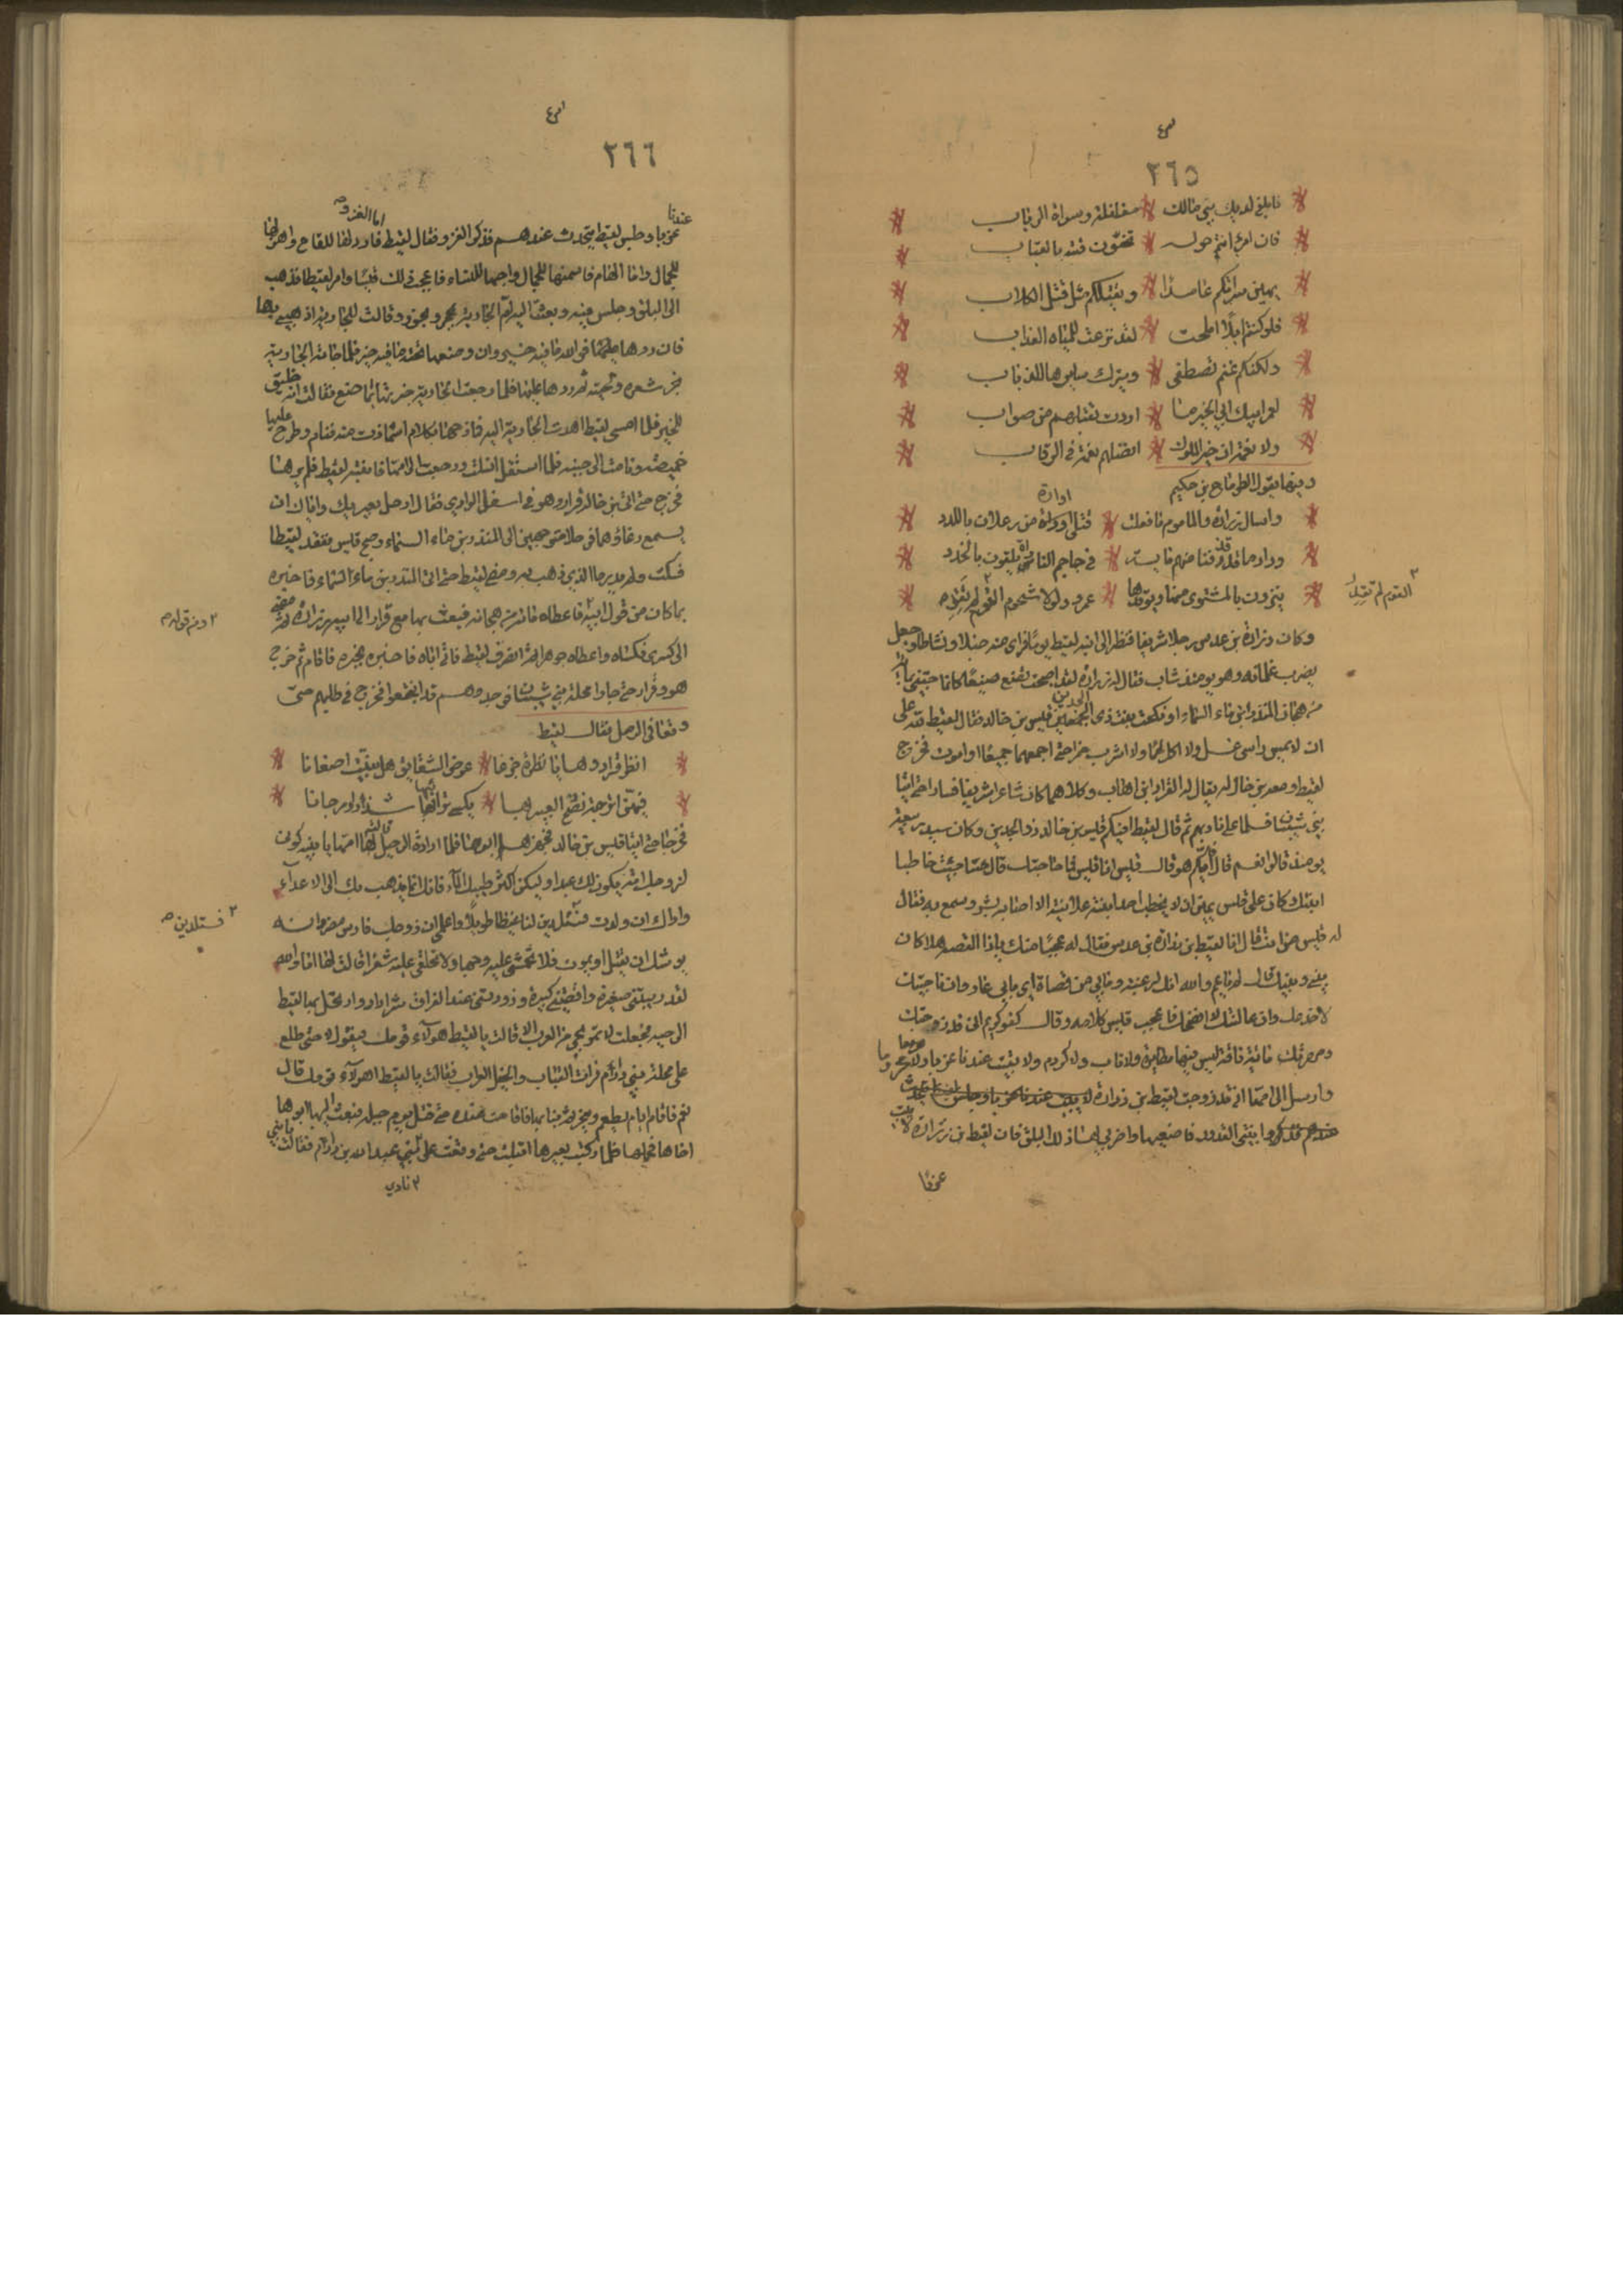 ٢٦٥
فابلغ لديك بني مالك * مغلغلة وسراة الرباب
فان امرءا انتم حوله * تحفون قبته بالقباب
يهين سراتكم عامدا * ويقتلكم مثل قتل الكلاب
فلو كنتم ابلا املحت * لقد نزعت للمياه العذاب
ولكنكم غنم تصطفى * ويترك سايرها للذياب
لعمر ابيك ابي الخير ما * اردت بقتلهم من صواب
ولا نعمة ان خير الملوك * افضلهم نعمة في الرقاب
وفيها يقول الطرماح بن حكيم
واسال زرارة والمامور ما فعلت * قتلى اوارة من رعلان باللدد
ودارما قد قذفنا منهم ماية * في جاحم النار يلقون بالخدد
ينزون بالمشتوى منها ويوقدها * عمرو ولولا شحوم القوم لم تقد
القوم لم تقد
وكان زرارة بن عدس رجلا شريفا فنظر الى ابنه لقيط يوما فراى منه خيلا ونشاطا وجعل
يضرب غلمانه وهو يومئذ شاب فقال له زرارة لقد اصبحت تصنع صنيعا كانما جيتني بمائة
من هجان المنذر ابن ماء السماء او نكحت بنت ذي الجدين قيس بن خالد فقال لقيط لله علي
ان لا يمس راسي غسل ولا اكل لحما ولا اشرب خمرا حتى اجمعهما جميعا او اموت فخرج
لقيط ومعه ابن خال له يقال له القراد ابن اهاب وكلاهما كان شاعرا شريفا فسارا حتى اتيا
بني شيبان فسلما على ناديهم ثم قال لقيط افيكم قيس بن خالد ذو الجدين وكان سيد ربيعة
يومئذ قالوا نعم قال فايكم هو قال قيس انا قيس فما حاجتك قال جئتك خاطبا
ابنتك وكان على قيس يمين ان لا يخطب احد ابنته علانية الا اصابه بشر وسمع به فقال
له قيس من انت قال انا لقيط بن زرارة بن عدس فقال له عجبا منك يا ذا القصة هلا كان
بيني وبينك قال له يا عم والله انك لرغبة وما بي من قضاة اي ما بي عار وان ناجيتك
لا اخدعك وان عالنتك لا افضحك فاعجب قيس كلامه وقال كفو كريم اني قد زوجتك
ومهرتك مائة ناقة ليس فيها مظايرة ولا ناب ولا كزوم ولا تبيت عندنا عزبا ولا محروما
وارسل الى امها اني قد زوجت لقيط بن زرارة
فاصنعيها واضربي لها ذلك البلق فان لقيط بن زرارة لا يبيت
عزبا
٢٦٦
عندنا
عزبا وجلس لقيط يتحدث عندهم فذكروا الغزو فقال لقيط اما الغزو فاردها للقاح واهزلها
للجمال واما المقام فاسمنها للجمال واحبها للنساء فاعجب ذلك قيسا وامر لقيطا فذهب
الى البلق وجلس فيه وبعثت اليه ام الجارية بمجمر وبخور وقالت للجارية اذهبي بها
فان ردها
بخر شعره ولحيته ثم ردها عليها فلما رجعت الجارية خبرتها بما صنع فقالت انه خليق
للخير فلما امسى لقيط اهديت الجارية اليه فمازحها بكلام اشمازت منه فنام وطرح عليها
خميصة ونامت الى جنبه فلما استثقل انسلت ورجعت الى امها فانتبه لقيط فلم يرها
فخرج حتى اتى ابن خاله قرادا وهو في اسفل الوادي فقال ارحل بعيرك واياك ان
يسمع رغاؤهما متوجهين الى المنذر بن ماء السماء وصبح قيس ففقد لقيطا
فسكت ولم يدر ما الذي ذهب به ومضى لقيط حتى اتى المنذر بن ماء السماء فاخبره
بما كان من قول ابيه فاعطاه مائة من هجانه فبعث بها مع قراد الى ابيه زرارة ثم مضى
وثم قوله صح
الى كسرى فكساه واعطاه جوهرا ثم انصرف لقيط فاتى اباه فاخبره خبره فاقام ثم خرج
هو وقراد حتى جاوا محلة بني شيبان فوجدوهم قد انتجعوا فخرج في طلبهم حتى
وقعا في الرمل فقال لقيط
انظر قراد وهاتا نظرة جزعا * عرض الشقايق هل بينت اضعانا
فيهن اترجة نضخ العبير بها * يكسى ترائبها شذرا ومرجانا
فخرجا حتى اتيا قيس بن خالد فجهزها ابوها فلما ارادت الرحيل قالت لها امها يا بنية كوني
لزوجك امة يكون لك عبدا وليكن اكثر طيبك الماء فانك انما يذهب بك الى الاعداء
واراك ان ولدت فستلدين لنا غيظا طويلا واعلمي ان زوجك فارس مضر وانه
فستلدين صح
يوشك ان يقتل او يموت فلا تخمشي عليه وجها ولا تحلقي عليه شعرا قالت لها اما والله
لقد ربيتني صغيرة واقصيتني كبيرة وزودتني عند الفراق شر زاد وارتحل بها لقيط
الى حيه فجعلت لا تمر بحي من العرب الا قالت يا لقيط هولاء قومك فيقول لا حتى طلع
على محلة بني دارم فرات القباب والخيل العراب فقالت يا لقيط اهولاء قومك قال
نعم فاقام ايام يطعم وينحر ثم بنا بها فاقامت عنده حتى قتل يوم جبلة فبعث اليها ابوها
اخاها فحملها فلما ركبت بعيرها اقبلت حتى وقفت على بني عبد الله بن دارم فقالت يا بني
نادي